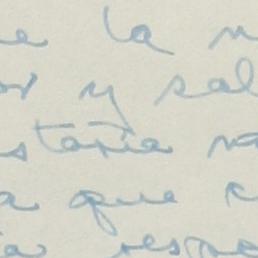 e la n
or y sal
staría na
a que c
ia respe